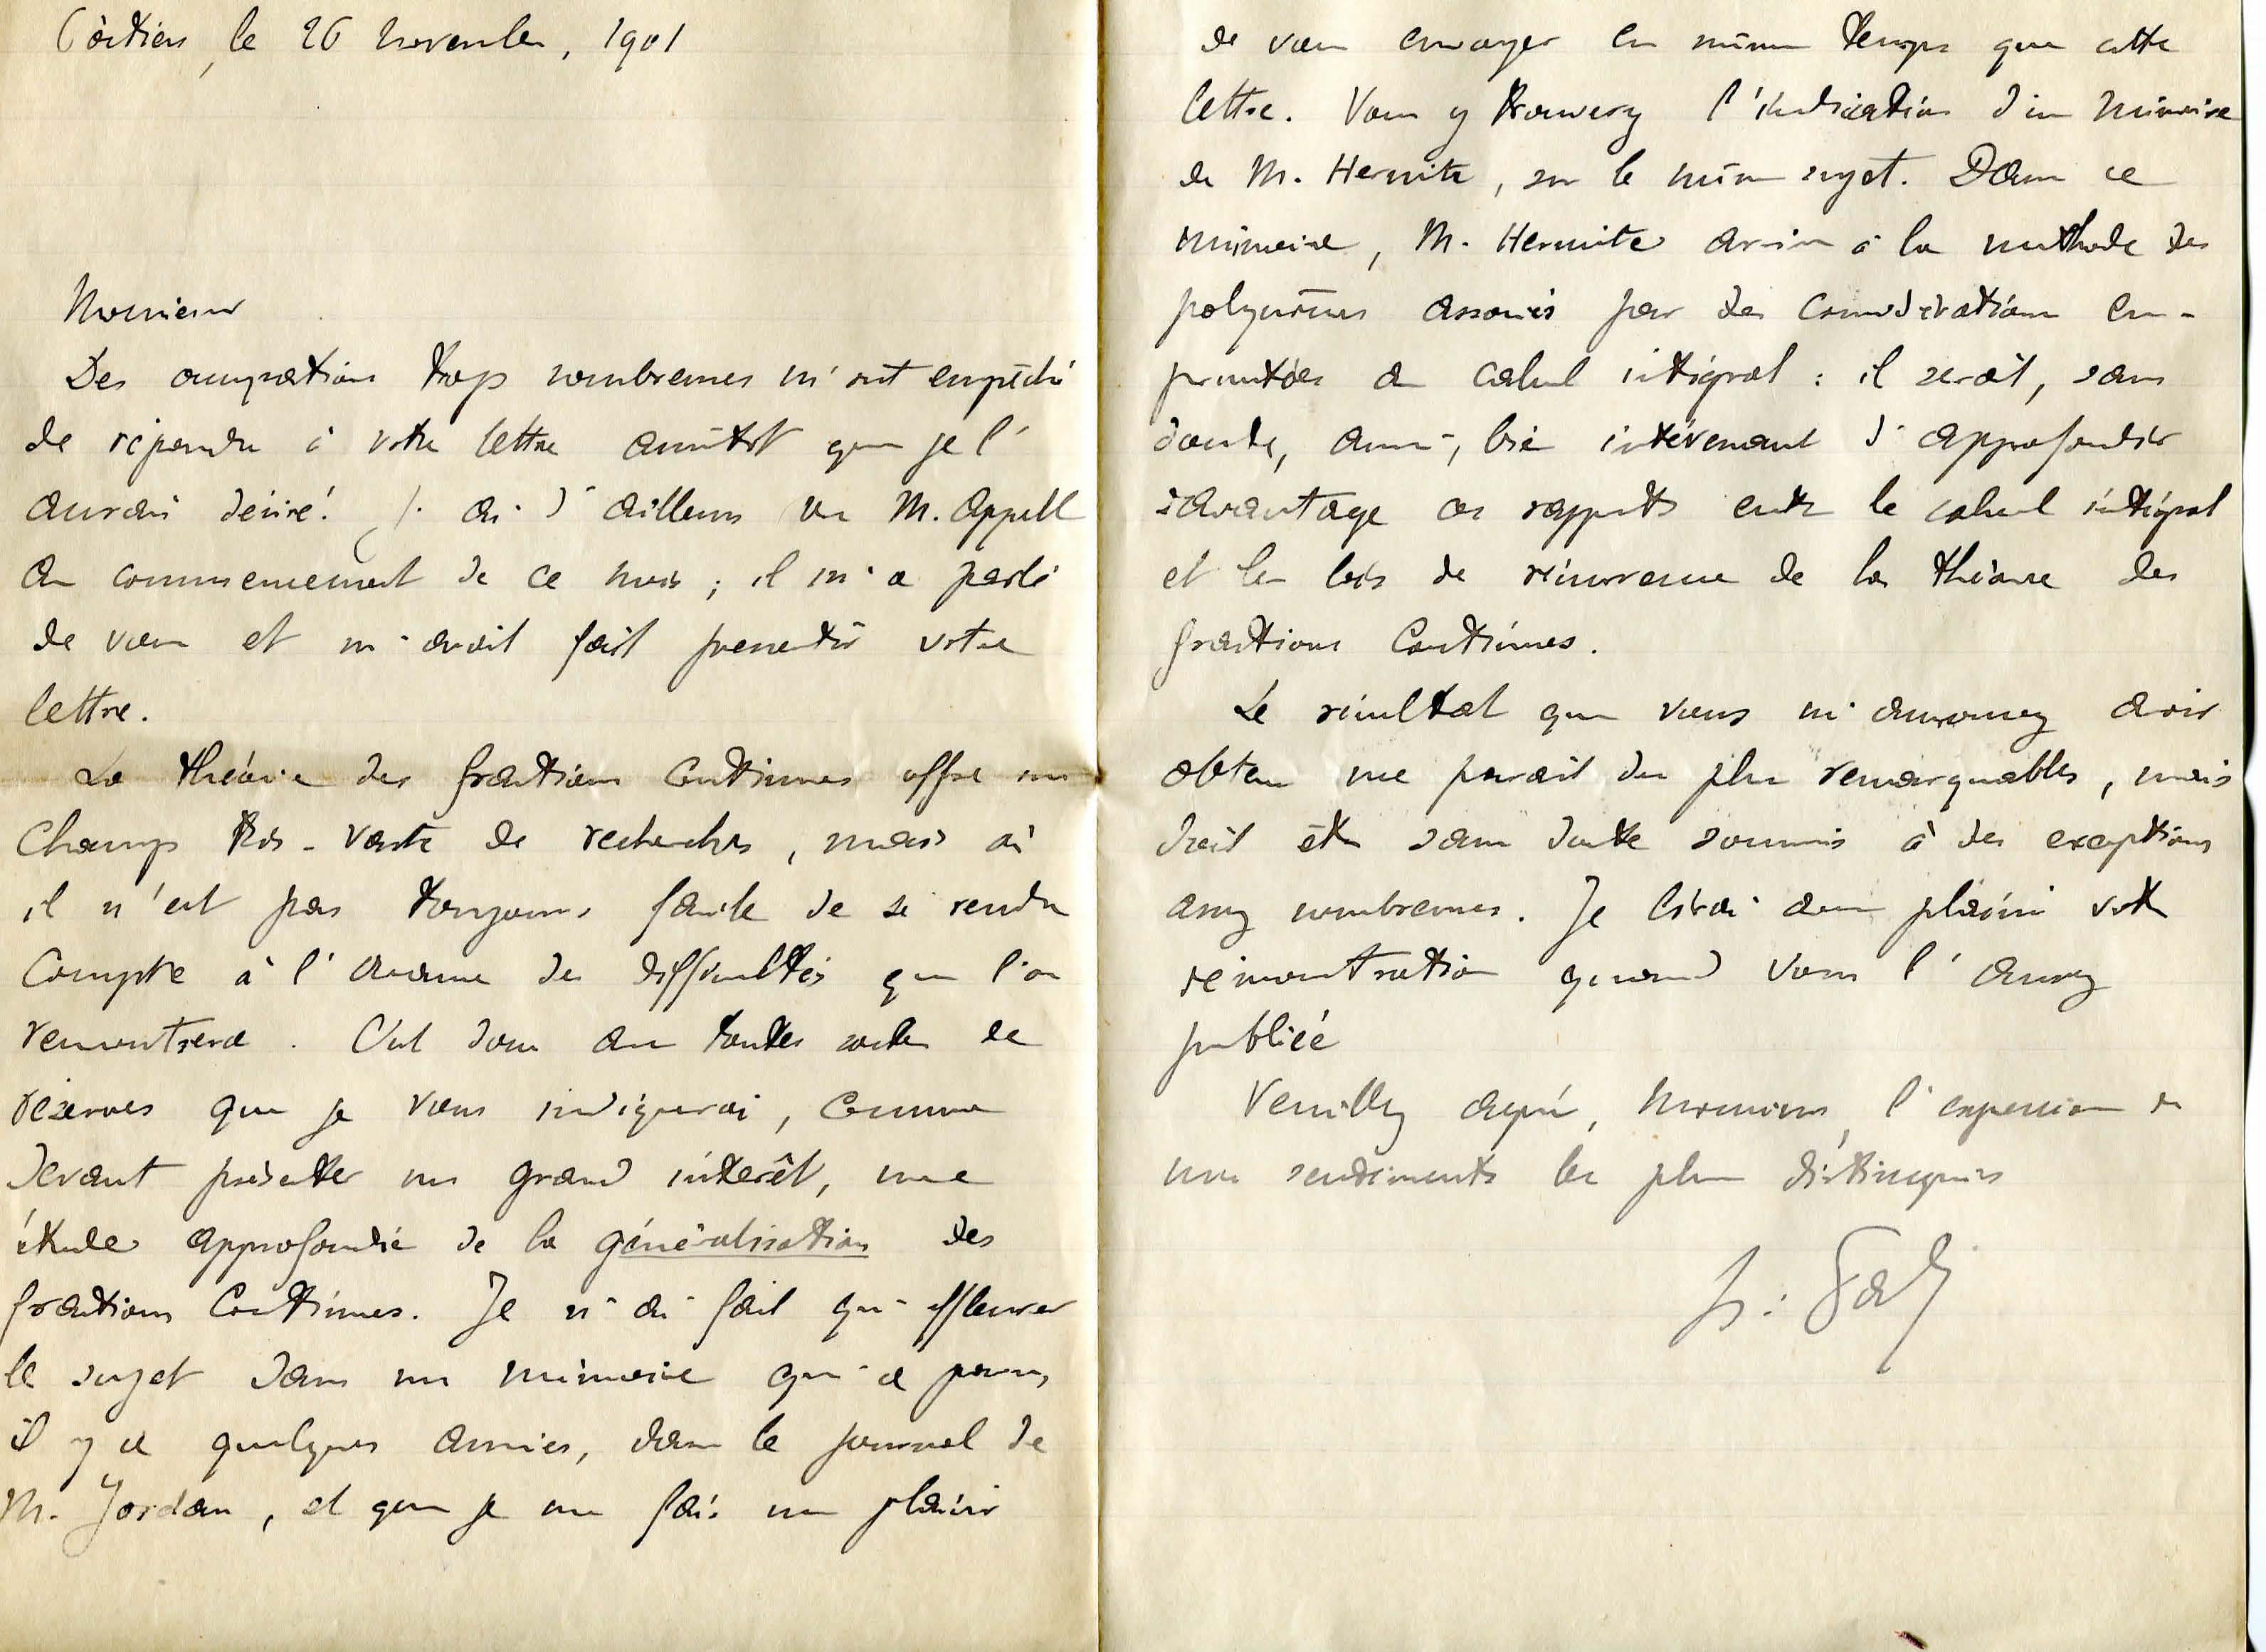 Poitiers, le 26 novembre, 1901
Monsieur
Des occupations trop nombreuses m'ont empêché
de répondre à votre lettre aussitôt que je l'
aurais désiré. J'ai d'ailleurs vu M. Appell
au commencement de ce mois ; il m'a parlé
de vous et m'avait fait pressentir votre
lettre.
La théorie des fractions continues offre un
champ très-vaste de recherches, mais où
il n'est pas toujours facile de se rendre
compte à l'avance des difficultés que l'on
rencontrera. C'est donc avec toutes sortes de
réserves que je vous indiquerai, comme
devant présenter un grand intérêt, une
étude approfondie de la généralisation des
fractions continues. Je n'ai fait qu'effleurer
le sujet dans un mémoire qui a paru,
il y a quelques années, dans le journal de
M. Jordan, et que je me fais un plaisir
de vous envoyer en même temps que cette
lettre. Vous y trouverez l'indication d'un mémoire
de M. Hermite, sur le même sujet. Dans ce
mémoire, M. Hermite arrive à la méthode des
polynômes associés par des considérations em-
pruntées au calcul intégral : il serait, sans
doute, aussi, bien intéressant d'approfondir
davantage ces rapports entre le calcul intégral
et les lois de récurrence de la théorie des
fractions continues.
Le résultat que vous m'annoncez avoir
obtenu me parait des plus remarquables, mais
doit être sans doute soumis à des exceptions
assez nombreuses. Je lirai avec plaisir votre
démonstration quand vous l'aurez
publiée
Veuillez agréer, Monsieur, l'expression de
mes sentiments les plus distingués